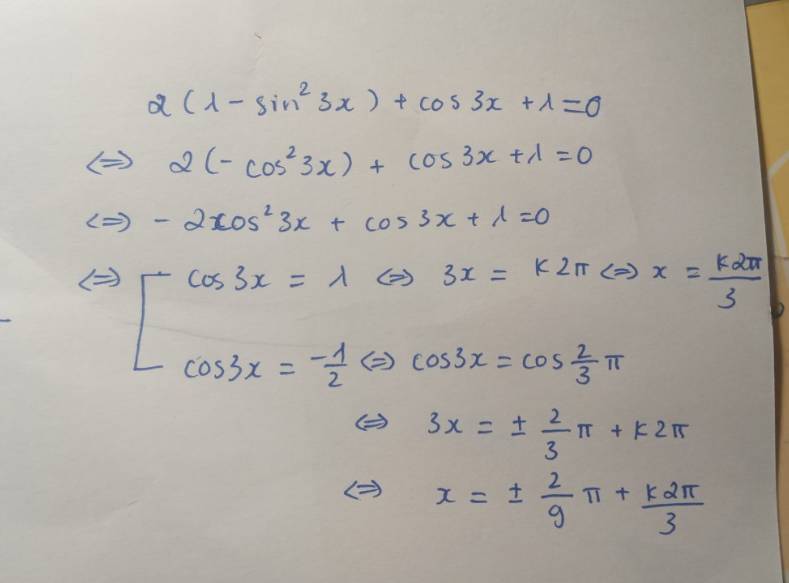 2(1 - sin² 3x) + cos 3x + 1 = 0
⇔ 2(- cos² 3x) + cos 3x + 1 = 0
⇔ - 2cos² 3x + cos 3x + 1 = 0
⇔ [ cos 3x = 1 ⇔ 3x = k2π ⇔ x = k2π/3
cos3x = -1/2 ⇔ cos3x = cos 2/3 π
⇔ 3x = ± 2/3 π + k2π
⇔ x = ± 2/9 π + k2π/3